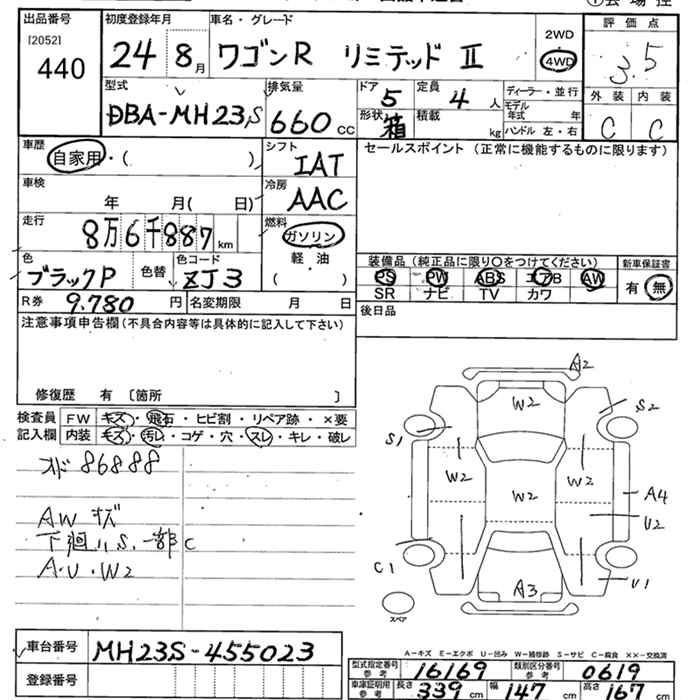 出品番号 初度登録年月 車名・グレード 2WD 評価点
[2052] 440 24 8月 ワゴンR リミテッド Ⅱ 4WD 3.5
型式 排気量 ドア 定員 ディーラー・並行 外装 内装
DBA-MH23S 660cc 5 4人 モデル年式 年 C C
形状 箱 積載 kg ハンドル 左・右
車歴 シフト セールスポイント (正常に機能するものに限ります)
自家用・( ) IAT
車検 冷房
年 月( 日) AAC
走行 燃料
8万6千887km ガソリン
軽・油
( )
色 色替 色コード 装備品 (純正品に限り〇をつけてください) 新車保証書
ブラックP ZJ3 PS PW ABS エアB AW 有 無
SR ナビ TV カワ
R券 9.780円 名変期限 月 日 後日品
注意事項申告欄(不具合内容等は具体的に記入して下さい)
修復歴 有 〔箇所 〕
検査員 FW キズ・飛石・ヒビ割・リペア跡・×要
記入欄 内装 キズ・汚レ・コゲ・穴・スレ・キレ・破レ
オド 86888
AW キズ
下廻リS.一部C
A・U・W2
A2
W2
S2
S1
W2
W2
W2
A4
U2
C1
A3
U1
スペア
車台番号 MH23S-455023
登録番号
A-キズ E-エクボ U-凹み W-補修跡 S-サビ C-腐食 ××-交換済
型式指定番号 参考 16169 類別区分番号 参考 0619
車庫証明用 参考 長さ 339cm 幅 147cm 高さ 167cm